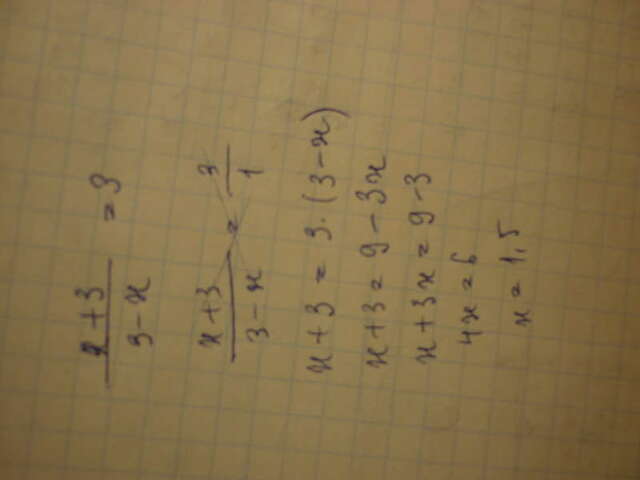 x+3 / 3-x = 3
x+3 / 3-x = 3 / 1
x+3 = 3·(3-x)
x+3 = 9-3x
x+3x = 9-3
4x = 6
x = 1,5